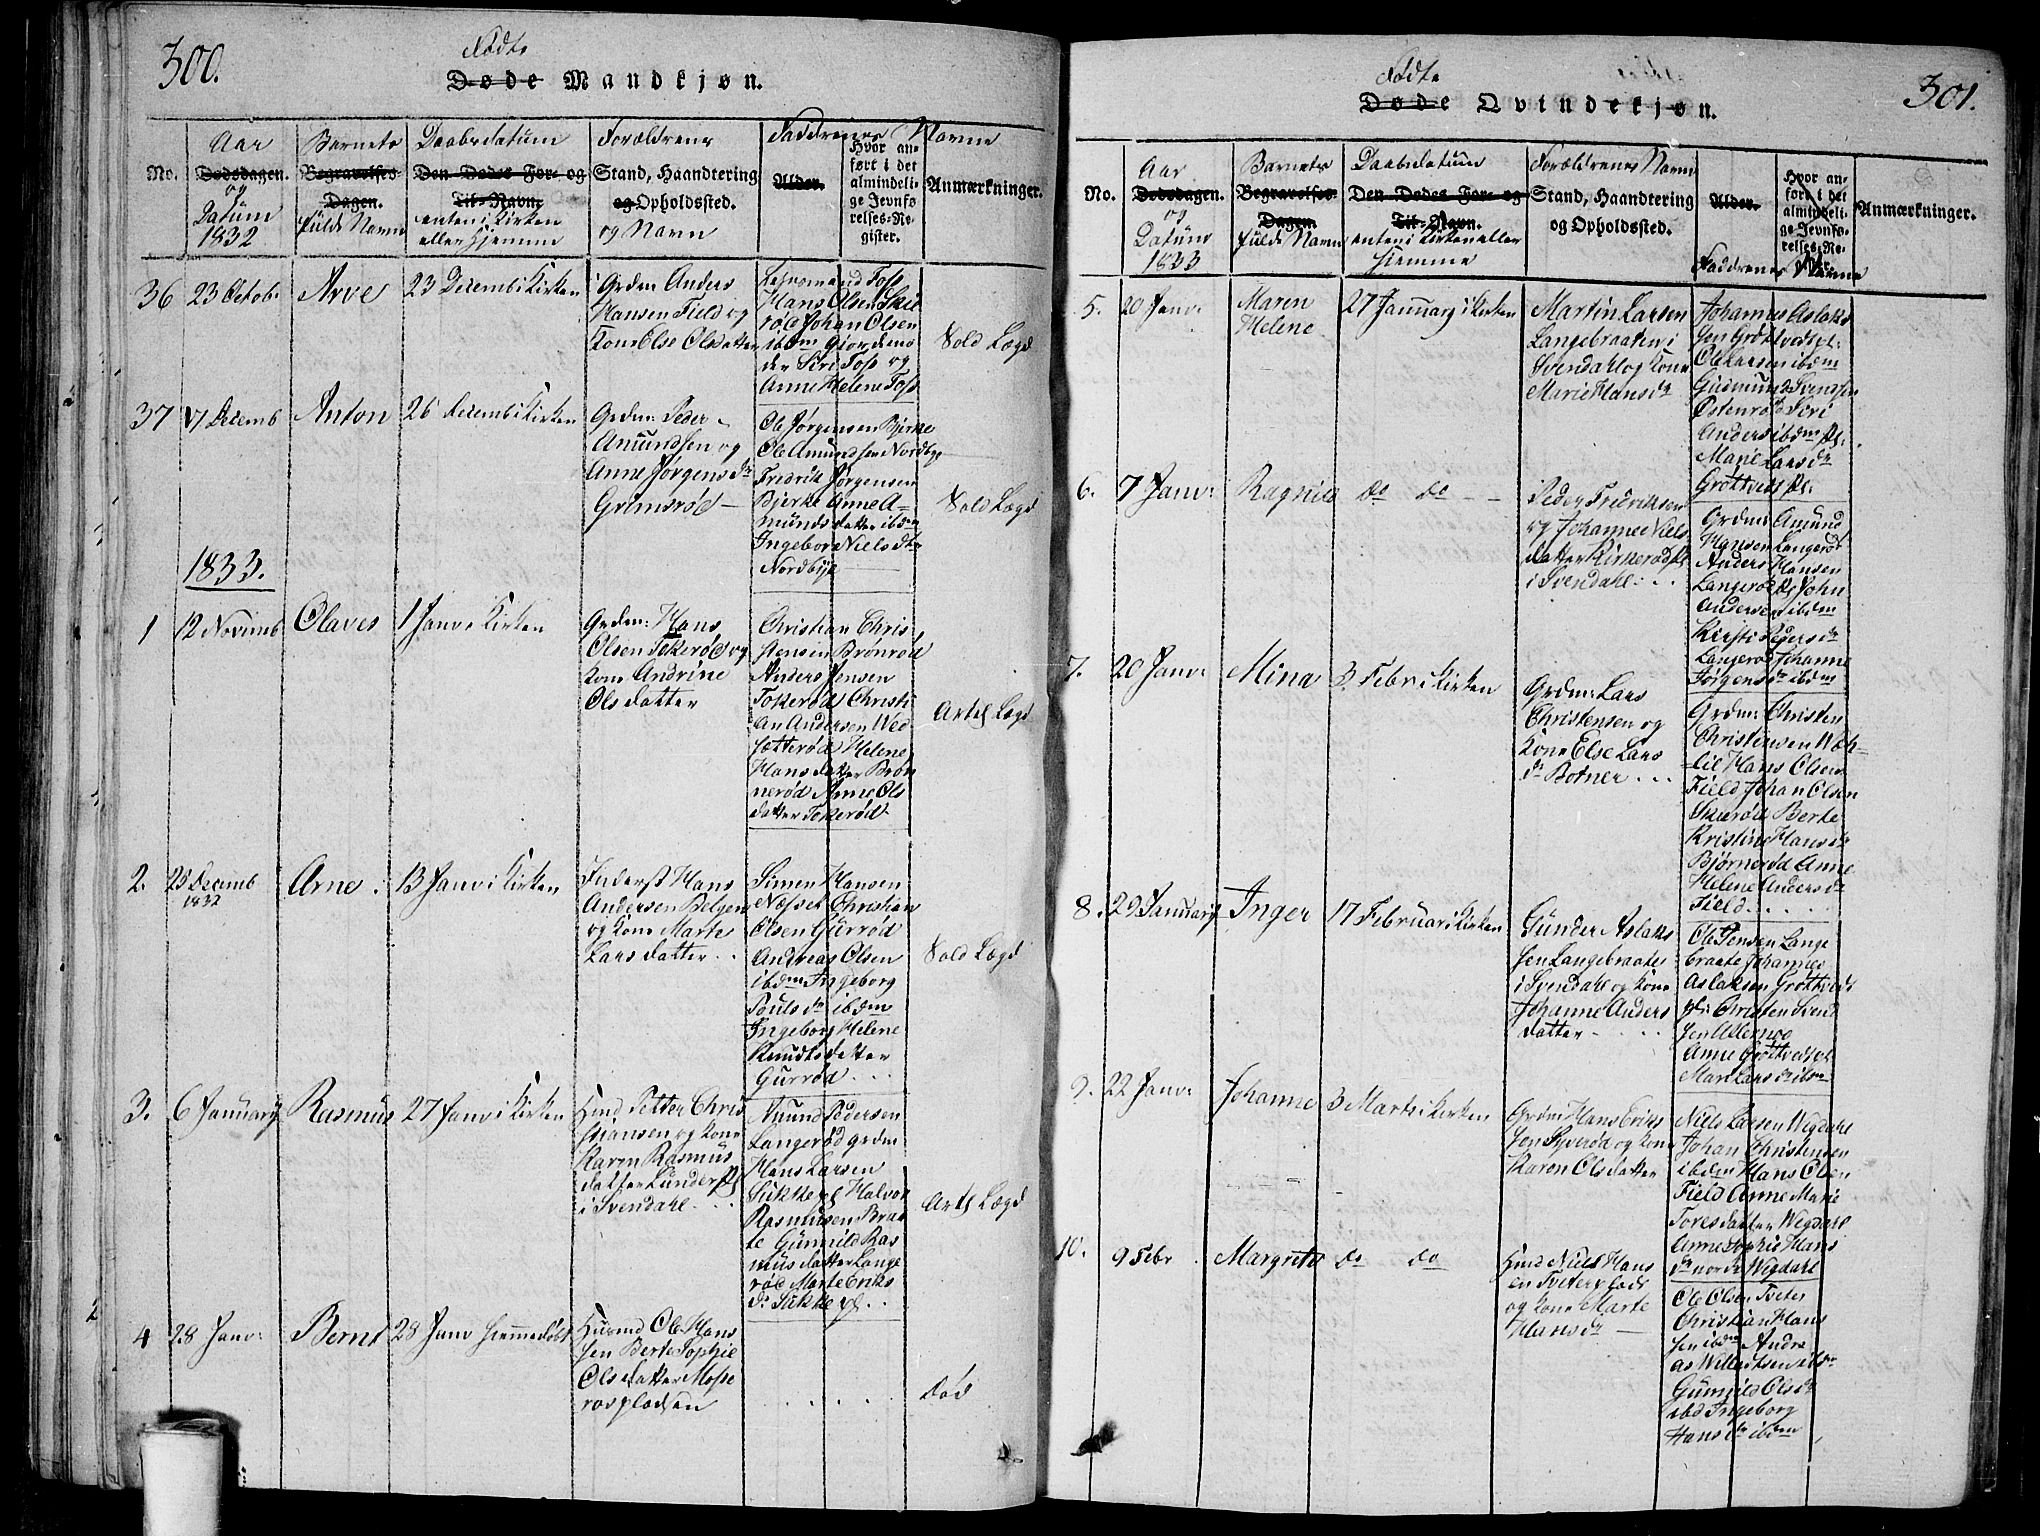 300.
Fødte
Døde Mandkjøn.
No.
Aar
Dødsdagen.
og
Datum
1832
Barnets
Begravelses-
Dagen.
fulde Navn
Daabsdatum
Den Dødes For- og
Til-Navn,
enten i Kirken
eller hjemme
Forældrenes
Stand, Haandtering
og Opholdssted.
og Navn
Faddrenes Navne
Alder.
Hvor an-
ført i det
almindeli-
ge Jevnfø-
relses-Re-
gister.
Anmærkninger.
36
23 Octob:
Arve
23 Decemb i Kirken
Grdm: Anders
Hansen Field og
Kone Else Olsdatter
Hans Olsen Skie
rød Johan Olsen
ibdm
der Siri Foss og
Anne Helene Foss
Vold Lægd
37
17 Decemb
Anton
26 Decemb i Kirken
Grdm: Peder
Amundsen og
Anne Jørgensdr
Grimsrød
Ole Jørgensen Bjerke
Ole Amundsen Nordbye
Fredrik Jørgensen
Bjerke Anne A-
mundsdatter ibdm
Ingebor Nielsdtr
Nordbye
Vold Lægd
1833.
1
12 Novemb
Olaves
1 Jan: i Kirken
Grdm: Hans
Olsen Tokerød og
kone Andrine
Olsdatter
Christian Chris
tensen Brønrød
Anders Jensen
Tokerød Christi
an Andersen Wed
sætterød Helene
Hansdatter Brøn
nerød Anne Ols
datter Tokerød
Artel Lægd
2.
25 Decemb
1832
Arne.
13 Janv i Kirken
Inderst Hans
Andersen Belgen
og kone Marte
Larsdatter
Simen Hansen
Næsset Christian
Olsen Gurrød
Andreas Olsen
ibdm Ingeborg
Poulsdr ibdm
Ingeborg Helene
Knudtsdatter
Gurrød
Vold Lægd
3.
6 January
Rasmus
27 Janv i Kirken
Huusd Petter Chris
tiansen og kone
Karen Rasmus
datter Lunder pl
i Svendahl
Amund Pedersen
Langerød grdm
Hans Larsen
Sukke pl Halvor
Rasmusen Braa
te Gunnild Ras
musdatter Lange
rød Marte Eriks
dr Sukke pl.
Artel Lægd
4
28 Janv:
Bernt
28 Janv hiemmedøbt
Huusmd Ole Hans
sen Berte Sophie
Olsdatter Mosse
rosepladsen
død
301.
Fødte
Døde Qvindekjøn.
No.
Aar
Dødsdagen.
og
Datum
1833
Barnets
Begravelses-
Dagen.
fulde Navn
Daabsdatum
Den Dødes For- og
Til-Navn.
enten i Kirken eller
hiemme
Forældrenes Navn
Stand, Haandtering
og Opholdssted.
Alder.
Hvor an-
ført i det
almindeli-
ge Jevnfø-
relses-Re-
gister.
Faddrenes Navne
Anmærkninger.
5.
20 Janv:
Maren
Helene
27 January i Kirken
Martin Larsen
Langebraaten i
Svendahl og kone
Marie Hansdr
Johannes Aslaks
sen Grøttvedt pl:
Ole Larsen ibdm
Gudmund Svendsen
Østenrød Siri
Anders ibdm pl.
Marie Larsdr
Grøttvedt pl:
6.
7 Janv:
Ragnild
do do
Peder Fredriksen
og Johanne Niels
datter Kirkerød pl
i Svendahl
Grdm: Amund
Hansen Langerød
Anders Hansen
Langerød pl John
Andersen ibdm
Kirsti Pedersdr
Langerød Johanne
Jørgensdr ibdm
7.
20 Janv:
Mina
3. Febr i Kirken
Grdm: Lars
Christensen og
kone Else Lars
dr Botner
Grdm: Christen
Christensen Wøh-
lie Hans Olsen
Field Johan Olsen
Skierød Berte
Kristine Hansdr
Bjørnerød Anne
Helene Andersdr
Field
8.
29 January
Inger
17 Februar i Kirken
Gunder Aslaks
sen Langebraaten
i Svendahl og kone
Johanne Anders
datter
Ole Jensen Lange
braate Johannes
Aslaksen Grøttvedt
pl: Christen Svend
sen Allernæe
Anne Grøttvedt pl
Mari Larsdr ibdm
9.
22 Janv:
Johanne
3 Marts i Kirken
Grdm Hans Eriks
sen Syverød og kone
Karen Olsdatter
Niels Larsen Wegdahl
Johan Christensen
ibdm Hans Olsen
Field Anne Marie
Toresdatter Wegdahl
Anne Sophie Hans
dr nordre Wegdahl
10.
9 Febr
Margrete
do do
Huusd Niels Hans
en Tveterplads
og kone Marte
Hansdr
Ole Olsen Tveter
Christian Hans
sen ibdm Andre
as Willadtsen ibdm
Gunnild Olsdr
ibd Ingeborg
Hansdr ibdm